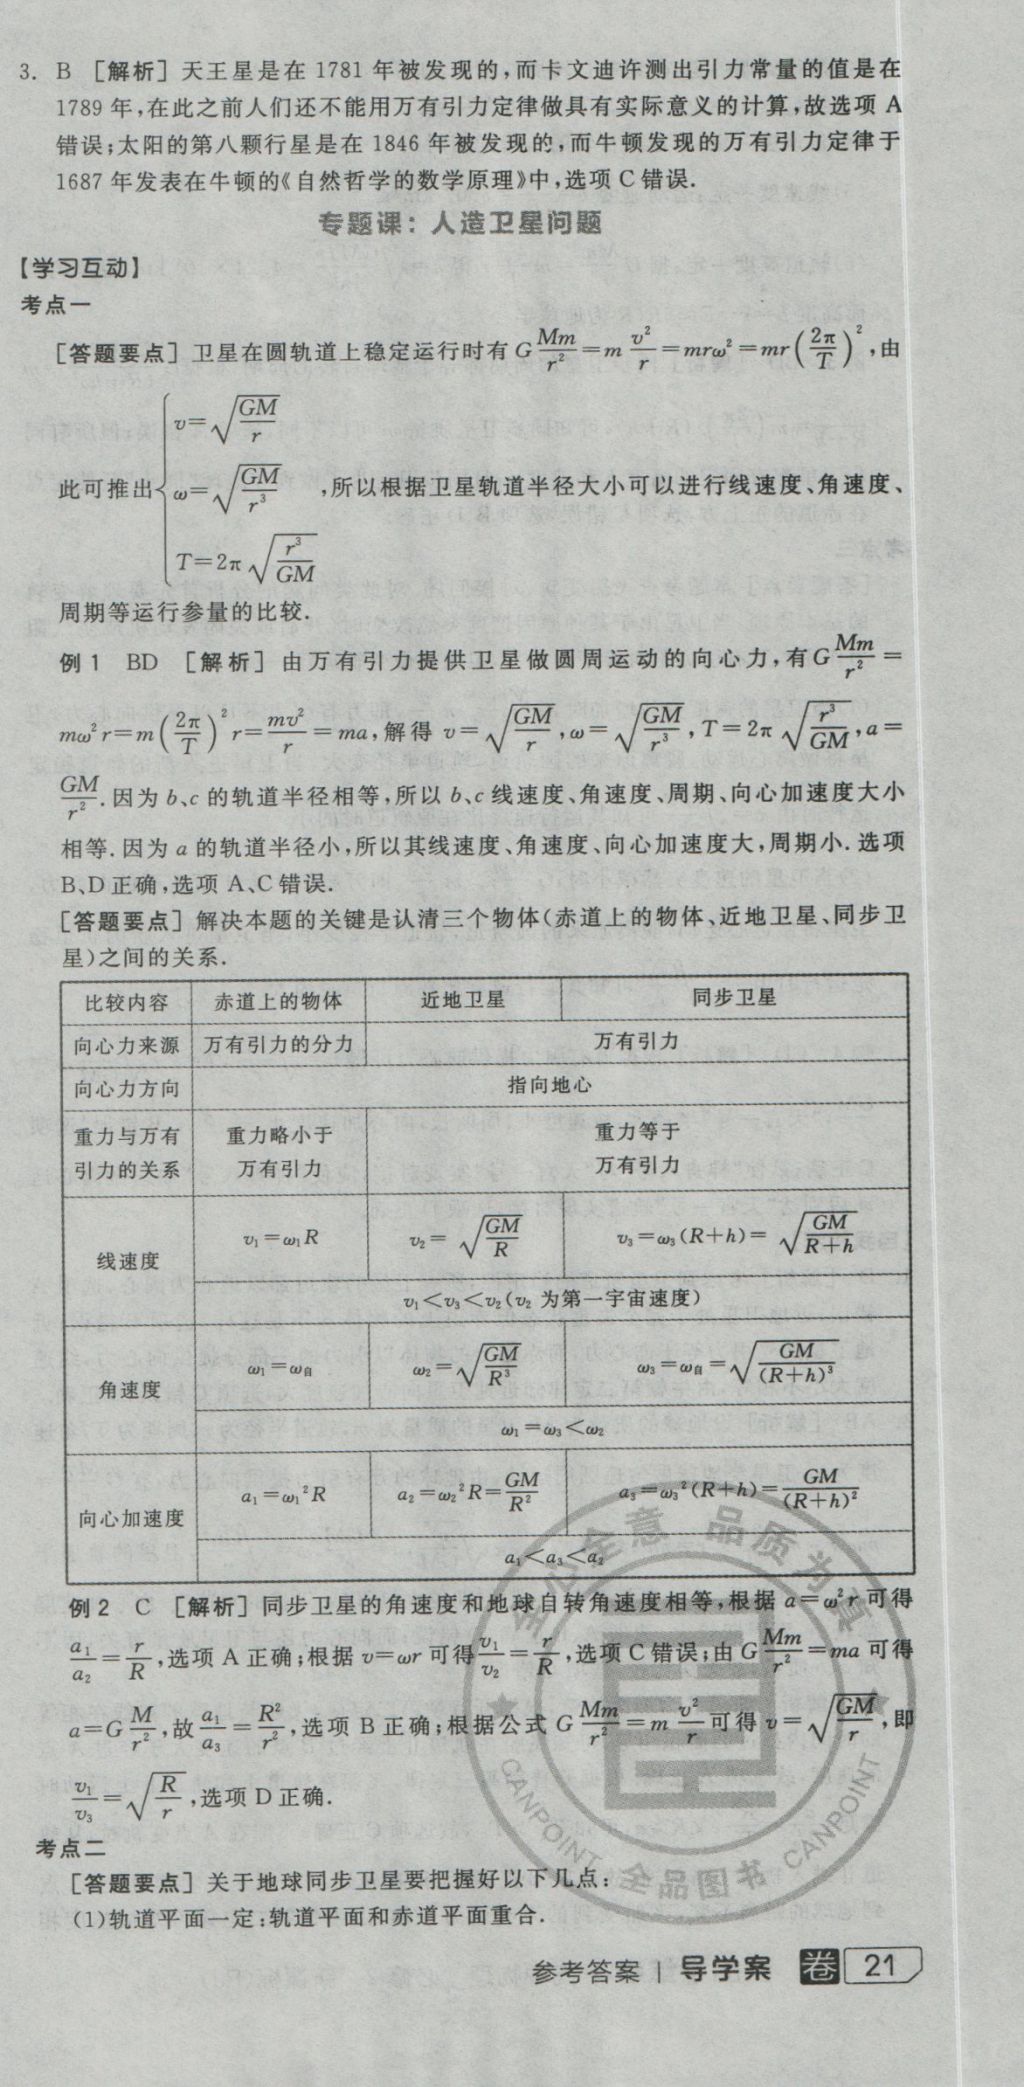 3. B [解析] 天王星是在 1781 年被发现的,而卡文迪许测出引力常量的值是在
1789 年,在此之前人们还不能用万有引力定律做具有实际意义的计算,故选项 A
错误;太阳的第八颗行星是在 1846 年被发现的,而牛顿发现的万有引力定律于
1687 年发表在牛顿的《自然哲学的数学原理》中,选项 C 错误.
专题课：人造卫星问题
【学习互动】
考点一
[答题要点] 卫星在圆轨道上稳定运行时有 G Mm/r²=m v²/r=mrω²=mr(2π/T)²,由
此可推出{v=√(GM/r)
ω=√(GM/r³)
T=2π√(r³/GM)
,所以根据卫星轨道半径大小可以进行线速度、角速度、
周期等运行参量的比较.
例 1 BD [解析] 由万有引力提供卫星做圆周运动的向心力,有 G Mm/r²=
mω²r=m(2π/T)²r=mv²/r=ma,解得 v=√(GM/r),ω=√(GM/r³),T=2π√(r³/GM),a=
GM/r².因为 b、c 的轨道半径相等,所以 b、c 线速度、角速度、周期、向心加速度大小
相等.因为 a 的轨道半径小,所以其线速度、角速度、向心加速度大,周期小.选项
B、D 正确,选项 A、C 错误.
[答题要点] 解决本题的关键是认清三个物体(赤道上的物体、近地卫星、同步卫
星)之间的关系.
比较内容 赤道上的物体 近地卫星 同步卫星
向心力来源 万有引力的分力 万有引力
向心力方向 指向地心
重力与万有 重力略小于 重力等于
引力的关系 万有引力 万有引力
线速度 v₁=ω₁R v₂=√(GM/R) v₃=ω₃(R+h)=√(GM/(R+h))
v₁<v₃<v₂(v₂ 为第一宇宙速度)
角速度 ω₁=ω自 ω₂=√(GM/R³) ω₃=ω自=√(GM/(R+h)³)
ω₁=ω₃<ω₂
向心加速度 a₁=ω₁²R a₂=ω₂²R=GM/R² a₃=ω₃²(R+h)=GM/(R+h)²
a₁<a₃<a₂
例 2 C [解析] 同步卫星的角速度和地球自转角速度相等,根据 a=ω²r 可得
a₁/a₂=r/R,选项 A 正确;根据 v=ωr 可得 v₁/v₂=r/R,选项 C 错误;由 G Mm/r²=ma 可得
a=G M/r²,故 a₁/a₃=R²/r²,选项 B 正确;根据公式 G Mm/r²=m v²/r 可得 v=√(GM/r),即
v₁/v₃=√(R/r),选项 D 正确.
考点二
[答题要点] 关于地球同步卫星要把握好以下几点:
(1)轨道平面一定:轨道平面和赤道平面重合.
全心全意 品质为真
CANPOINT 全品图书 CANPOINT
参考答案 | 导学案 卷 21